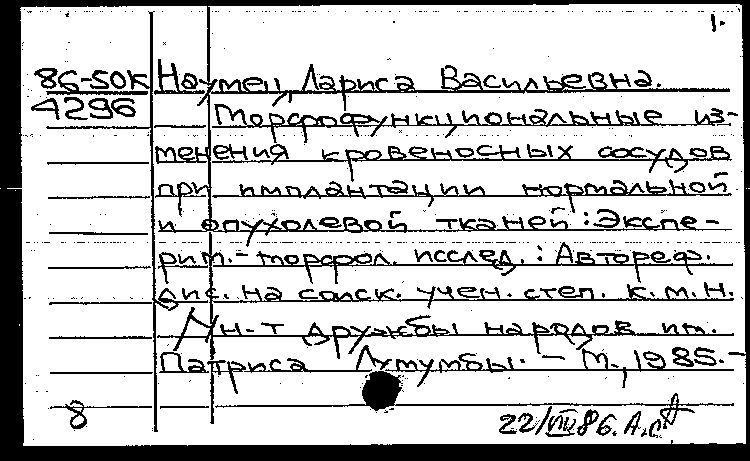 1.
86-50К Наумец, Лариса Васильевна.
4296 Морфофункциональные из-
менения кровеносных сосудов
при имплантации нормальной
и опухолевой тканей: Экспе-
рим.-морфол. исслед.: Автореф.
дис. на соиск. учен. степ. к.м.н.
/Ун-т дружбы народов им.
Патриса Лумумбы. - М., 1985.-
8
22/VII 86.